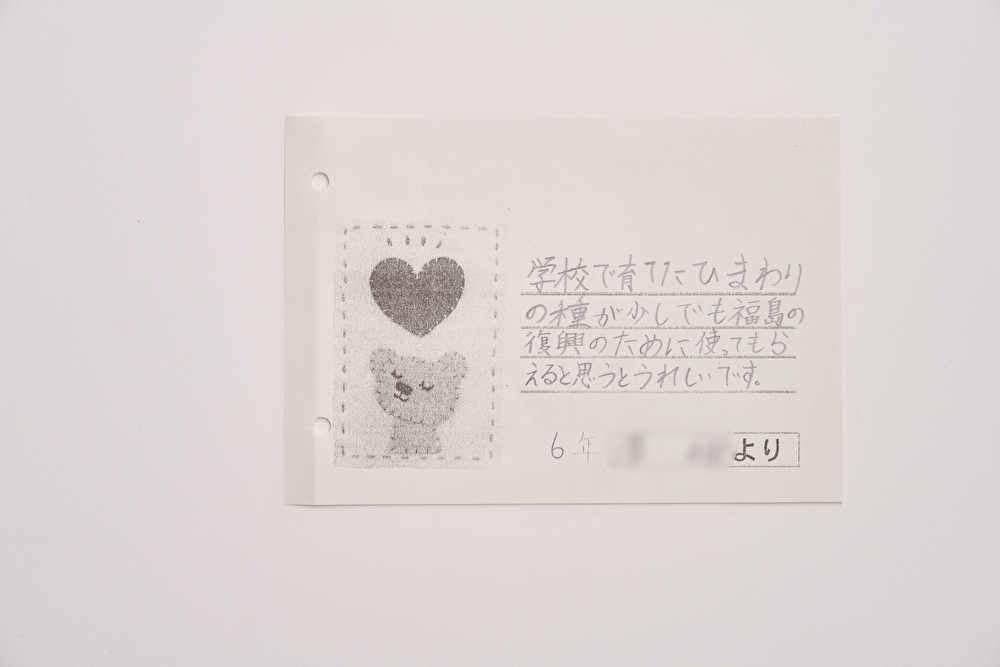 学校で育てたひまわり
の種が少しでも福島の
復興のために使ってもら
えると思うとうれしいです。
6年
より